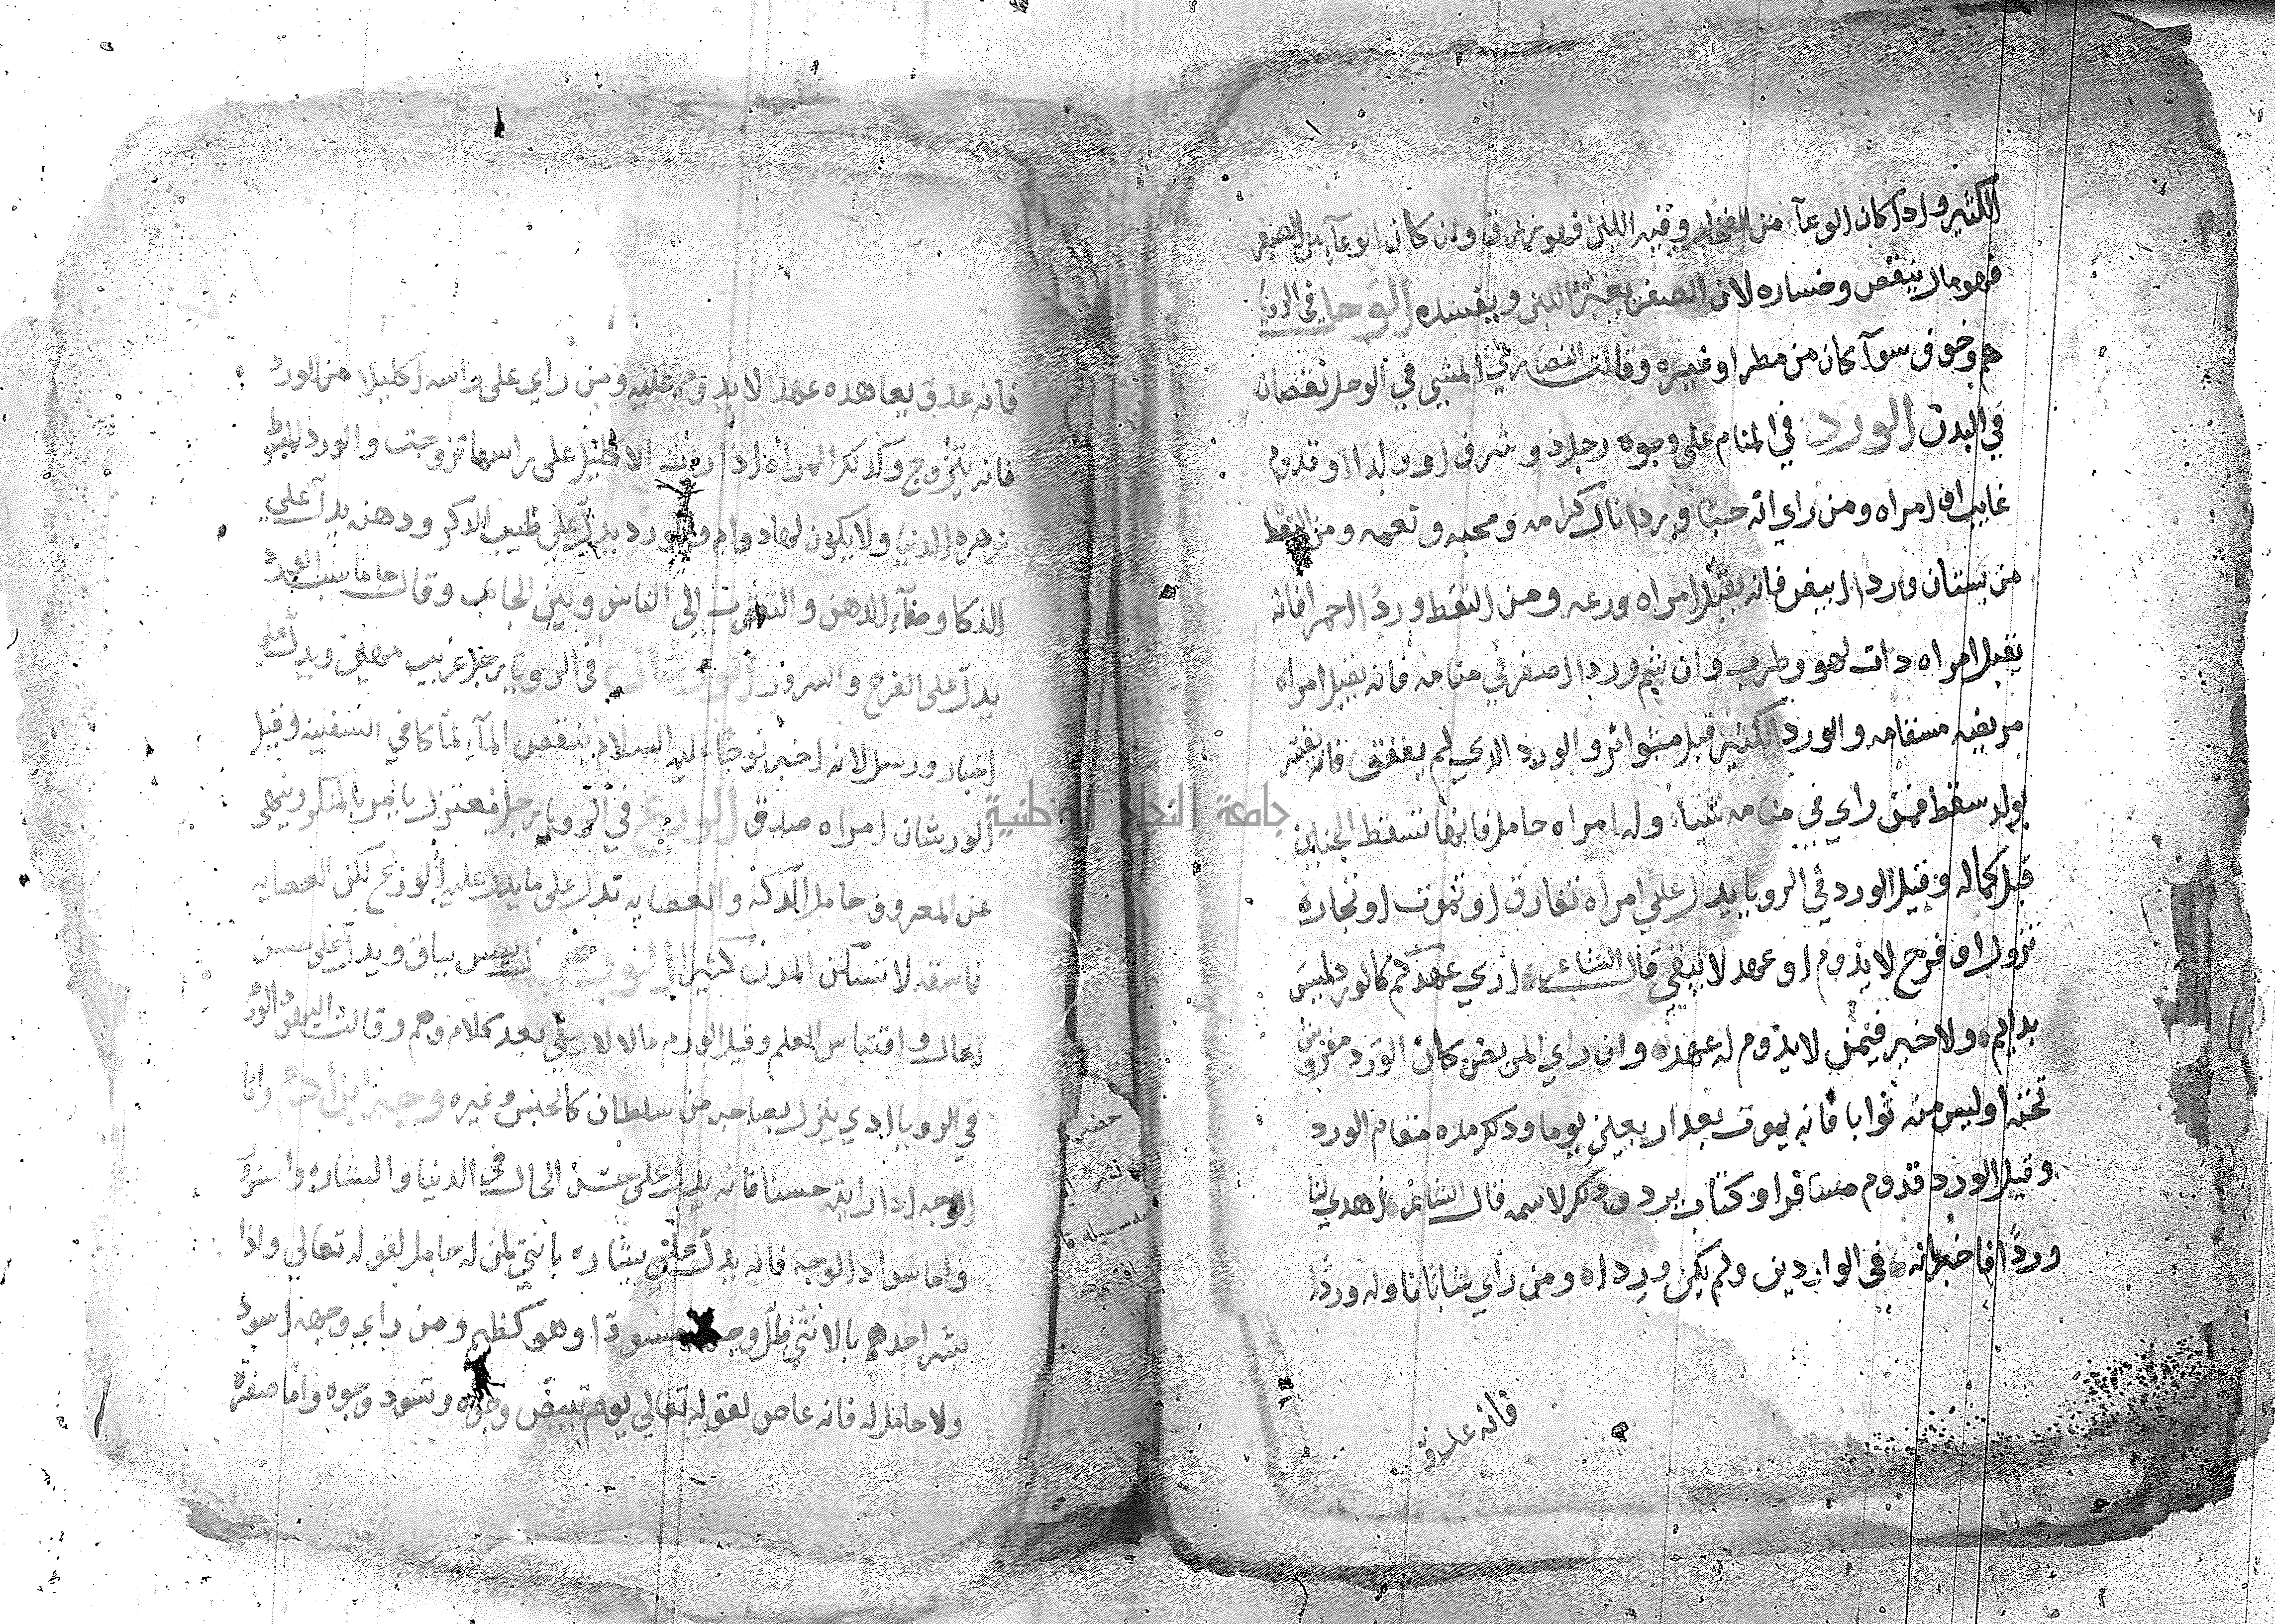 الكثير واذا كان الوعآء من الفخار وفيه اللبن فهو رزق وان كان الوعآء من الصفر
فهو مال ينقص وخساره لان الصفر يغير اللبن ويفسده الوحل في الرويا
هم وخوف سوآ كان من مطر او غيره وقالت النصاري المشي في الوحل نقصان
في البدن الورد في المنام علي وجوه رجل ذو شرف او ولد او قدوم
غايب او امراه ومن راي انه وردا نال كرامه ومحبه ونعمه ومن التقط
من بستان وردا ابيض فانه يقبل امراه ورعه ومن التقط وردًا احمرا فانه
يقبل امراه دات لهو وطرب وان شم وردا اصفر في منامه فانه يقبل امراه
مريضه مسقامه والورد الكثير قبل متواتر والورد الدي لم يفتق فانه
بولد سقط فمن راي في منامه شياء وله امراه حامل فانها تسقط الجنين
قبل كماله وقيل الورد في الرويا يدل علي امراه تفارق او تموت او تجاره
تزول او فرح لا يدوم او عهد لا يبقي قال الشاعر اري عهدكم كالورد ليس
بدايم ولا خير فيمن لا يدوم له عهد وان راي المريض كان الورد مفروش
تحته او لبس منه ثوابا فانه يموت بعد اربعين يوما ودلك مده مقام الورد
وقيل الورد قدوم مسافر او كتاب يرد ودلك لاسمه قال الشاعر اهدي لنا
وردًا فاخبر انه في الواردين ولم يكن وردا ومن راي شابا ناوله وردًا
فانه عدو
فانه عدو يعاهده عهدا لا يدوم عليه ومن راي علي راسه اكليلا من الورد
فانه يتزوج وكدلك المراه اذا رات الاكليل علي راسها تزوجت والورد
زهره الدنيا ولا يكون لها دوام والورد يدل علي طيب الدكر ودهنه يدل علي
الذكا وصفآء الدهن والتقرب الي الناس ولين الجانب وقال جاماسب الورد
يدل علي الفرح والسرور الورشان في الرويا رجل غريب مهين ويدل علي
اخبار ورسل لانه اخبر نوحًا عليه السلام بنقص المآء لما كا في السفينه وقيل
جامعة النجاح الوطنية
الورشان امراه صدق الوزغ في الرويا رجل معتزل يامر بالمنكر وينهي
عن المعروف خامل الدكر والعصايه تدل علي ما يدل عليه الوزغ لكن العصايه
فاسقه لا تسكن المدن كثيرا الورم ليس بباق ويدل علي حسن
الحال واقتباس العلم وقيل الورم مالا لا يبقي بعد كلام وهم وقالت اليهود الورم
في الرويا الدي ينزل بصاحبه من سلطان كالحبس وغيره وجه ابن ادم واما
الوجه اذا رايته حسنا فانه يدل علي حسن الحال في الدنيا والبشاره والسرور
واما سواد الوجه فانه يدل علي بشاره بانثي لمن له حامل لقوله تعالي واذا
بشر احدهم بالانثي ظل وجهه مسودّا وهو كظيم ومن راي وجهه اسود
ولا حامل له فانه عاص لقوله تعالي يوم تبيض وجوه وتسود وجوه واما صفرة